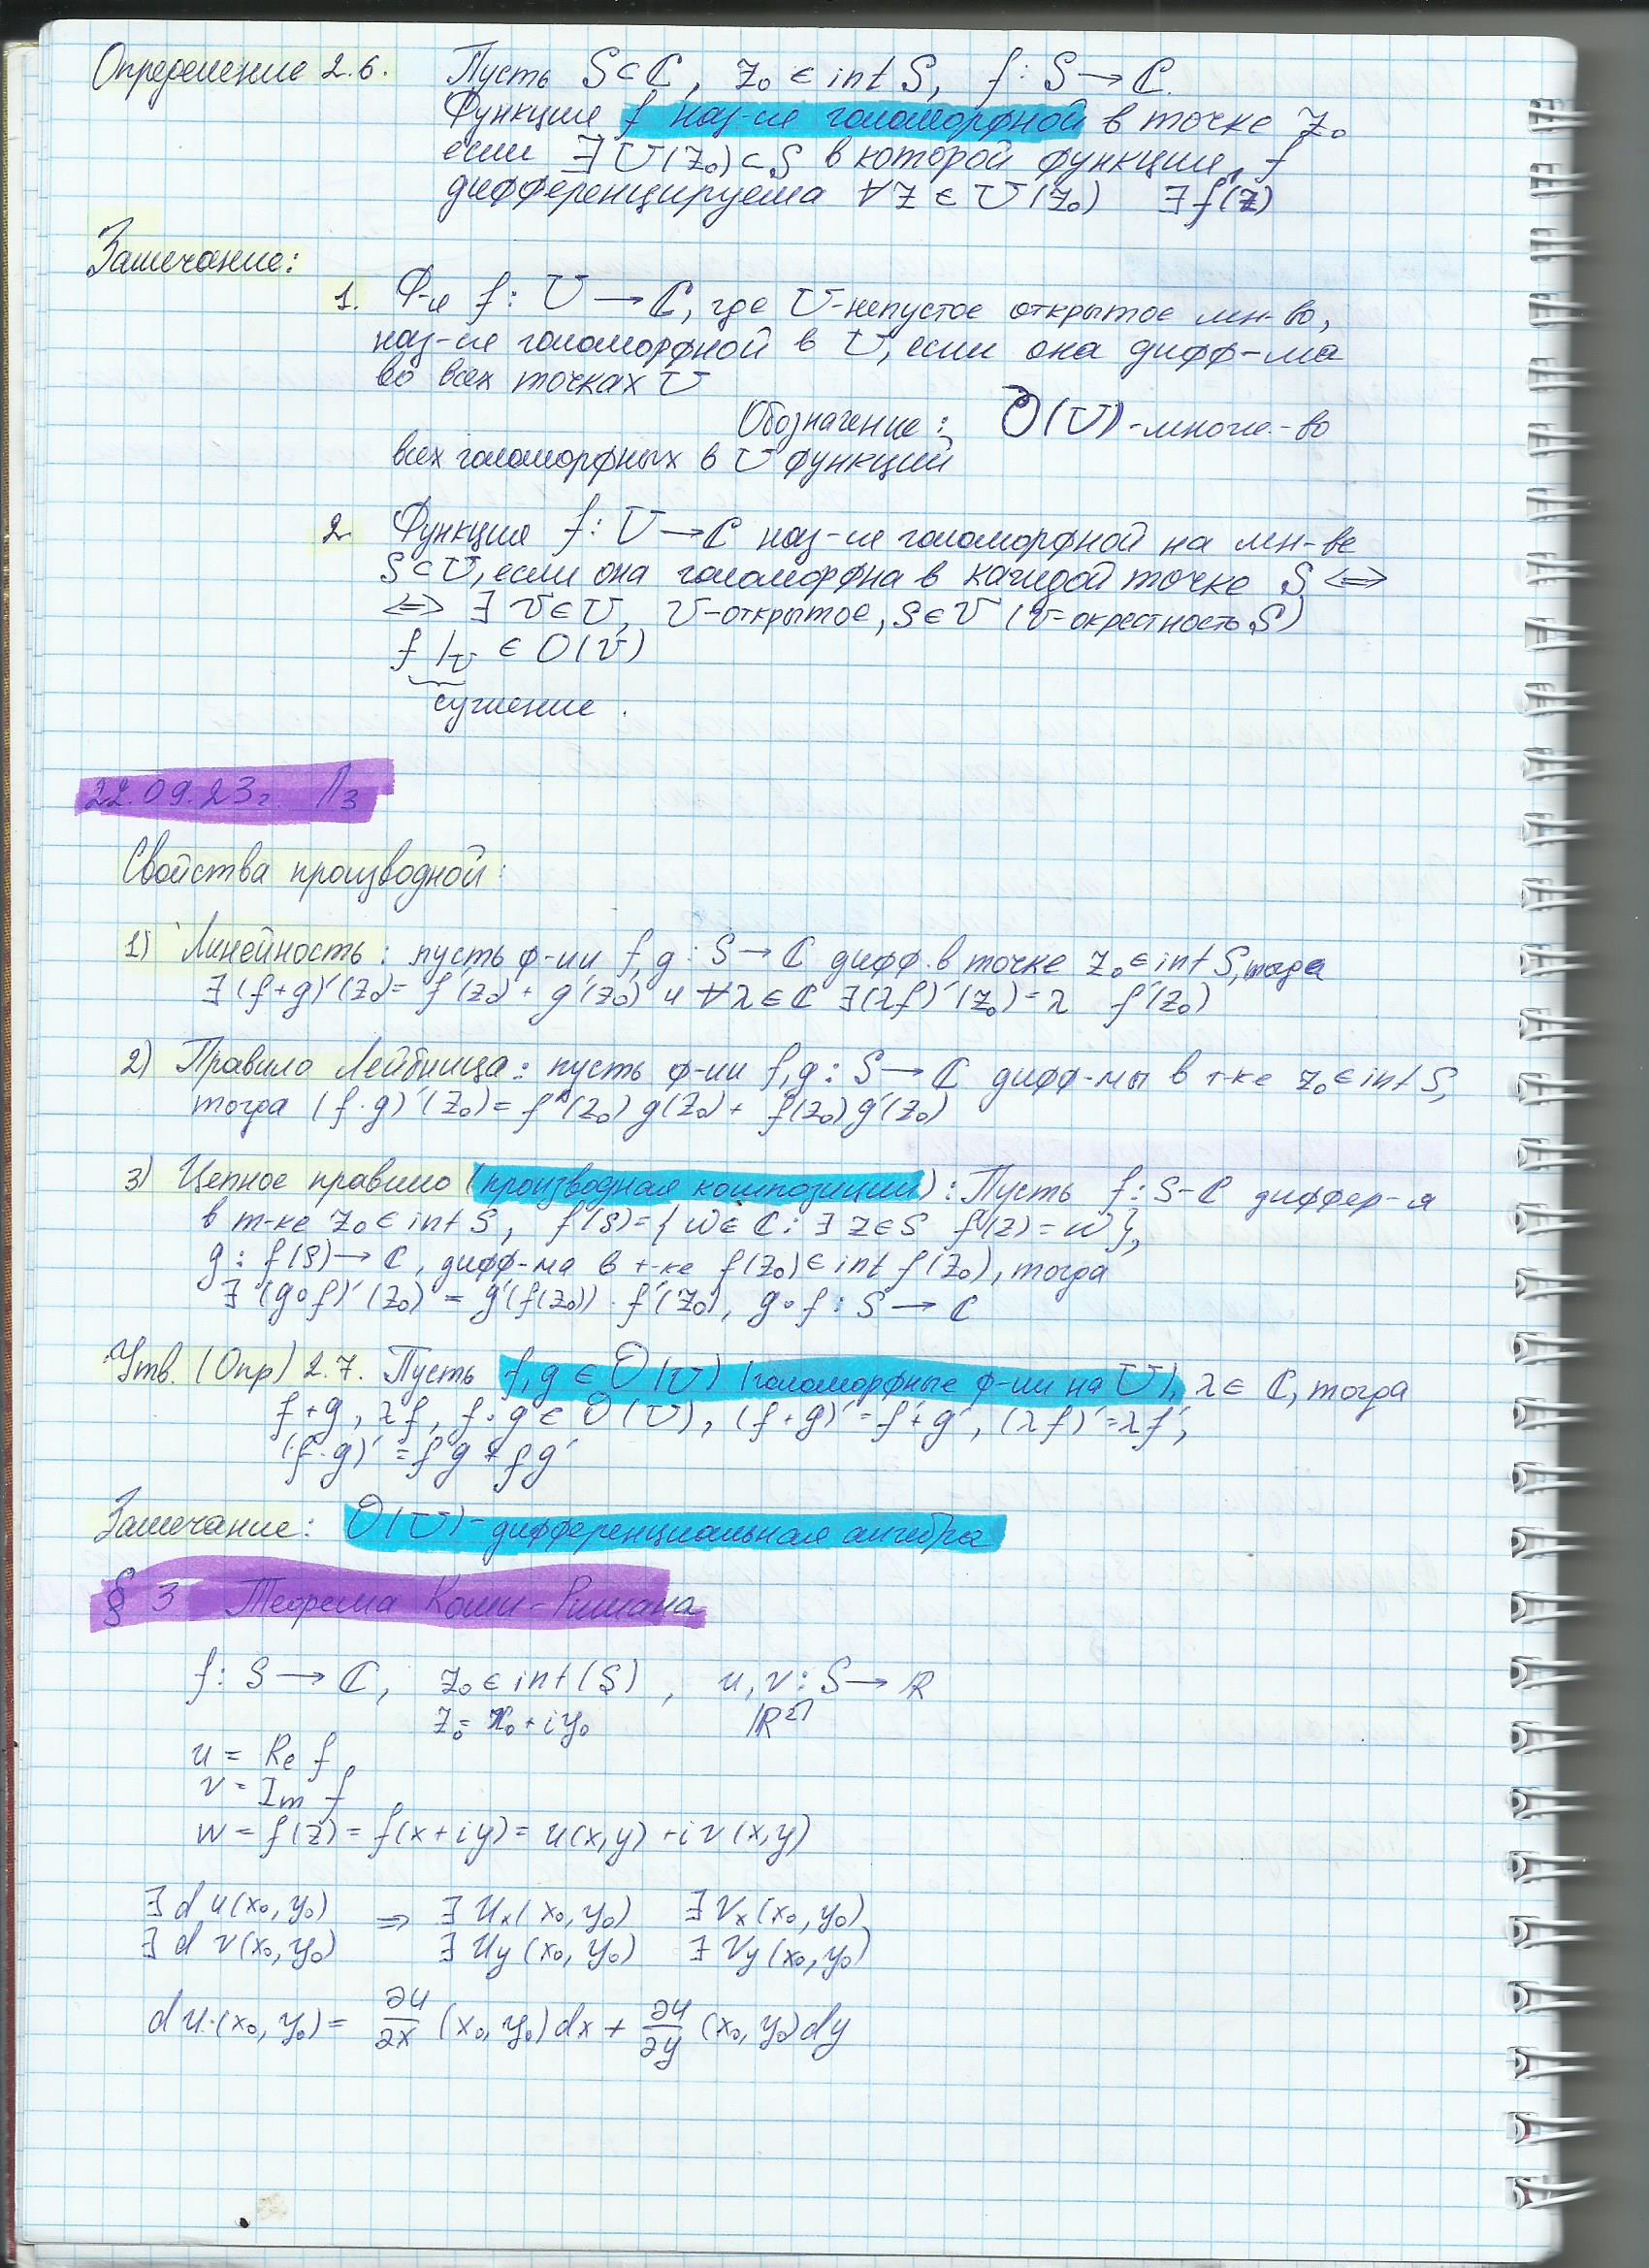 Определение 2.6. Пусть S⊂ℂ, z₀ ∈ int S, f: S → ℂ.
Функция f наз-ся голоморфной в точке z₀
если ∃ U(z₀) ⊂ S в которой функция f
дифференцируема ∀z ∈ U(z₀) ∃ f'(z)
Замечание:
1. Ф-я f: U → ℂ, где U-непустое открытое мн-во,
наз-ся голоморфной в U, если она дифф-ма
во всех точках U
Обозначение: O(U) - множе-во
всех голоморфных в U функций
2. Функция f: U → ℂ наз-ся голоморфной на мн-ве
S⊂U, если она голоморфна в каждой точке S ⟺
⟺ ∃ V∈U, V-открытое, S∈V (V-окрестность S)
f|ᵥ ∈ O(V)
сужение.
22.09.23г. Л3
Свойства производной:
1) Линейность: пусть ф-ии f, g: S → ℂ дифф. в точке z₀ ∈ int S, тогда
∃ (f+g)'(z₀) = f'(z₀) + g'(z₀) и ∀λ∈ℂ ∃(λf)'(z₀) = λ f'(z₀)
2) Правило Лейбница: пусть ф-ии f, g: S → ℂ дифф-мы в т-ке z₀ ∈ int S,
тогда (f·g)'(z₀) = f'(z₀) g(z₀) + f(z₀) g'(z₀)
3) Цепное правило (производная композиции): Пусть f: S-ℂ диффер-я
в т-ке z₀ ∈ int S, f(S) = {w∈ℂ: ∃ z∈S f(z) = w},
g: f(S) → ℂ, дифф-ма в т-ке f(z₀) ∈ int f(z₀), тогда
∃ (g∘f)'(z₀) = g'(f(z₀)) · f'(z₀), g∘f: S → ℂ
Утв. (Опр) 2.7. Пусть f, g ∈ O(U) (голоморфные ф-ии на U), λ∈ ℂ, тогда
f+g, λf, f·g ∈ O(U), (f+g)' = f'+g', (λf)' = λf',
(f·g)' = f'g + fg'
Замечание: O(U) - дифференциальная алгебра
§ 3 Теорема Коши-Римана
f: S → ℂ, z₀ ∈ int(S), u, v: S → ℝ
z₀ = x₀ + iy₀ ℝ²
u = Re f
v = Im f
w = f(z) = f(x+iy) = u(x,y) + iv(x,y)
∃ du(x₀, y₀) ⇒ ∃ uₓ(x₀, y₀) ∃ vₓ(x₀, y₀)
∃ dv(x₀, y₀) ∃ u_y(x₀, y₀) ∃ v_y(x₀, y₀)
du(x₀, y₀) = ∂u/∂x (x₀, y₀)dx + ∂u/∂y (x₀, y₀)dy